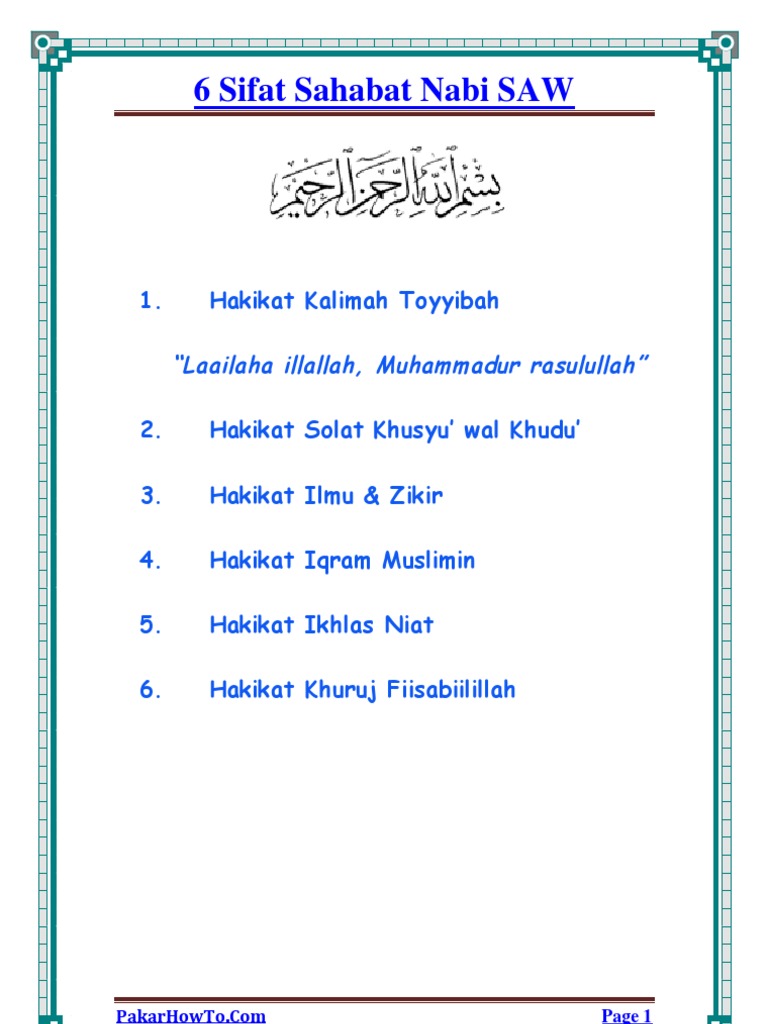 6 Sifat Sahabat Nabi SAW
بِسْمِ اللَّهِ الرَّحْمَنِ الرَّحِيمِ
1. Hakikat Kalimah Toyyibah
“Laailaha illallah, Muhammadur rasulullah”
2. Hakikat Solat Khusyu’ wal Khudu’
3. Hakikat Ilmu & Zikir
4. Hakikat Iqram Muslimin
5. Hakikat Ikhlas Niat
6. Hakikat Khuruj Fiisabiilillah
PakarHowTo.Com Page 1